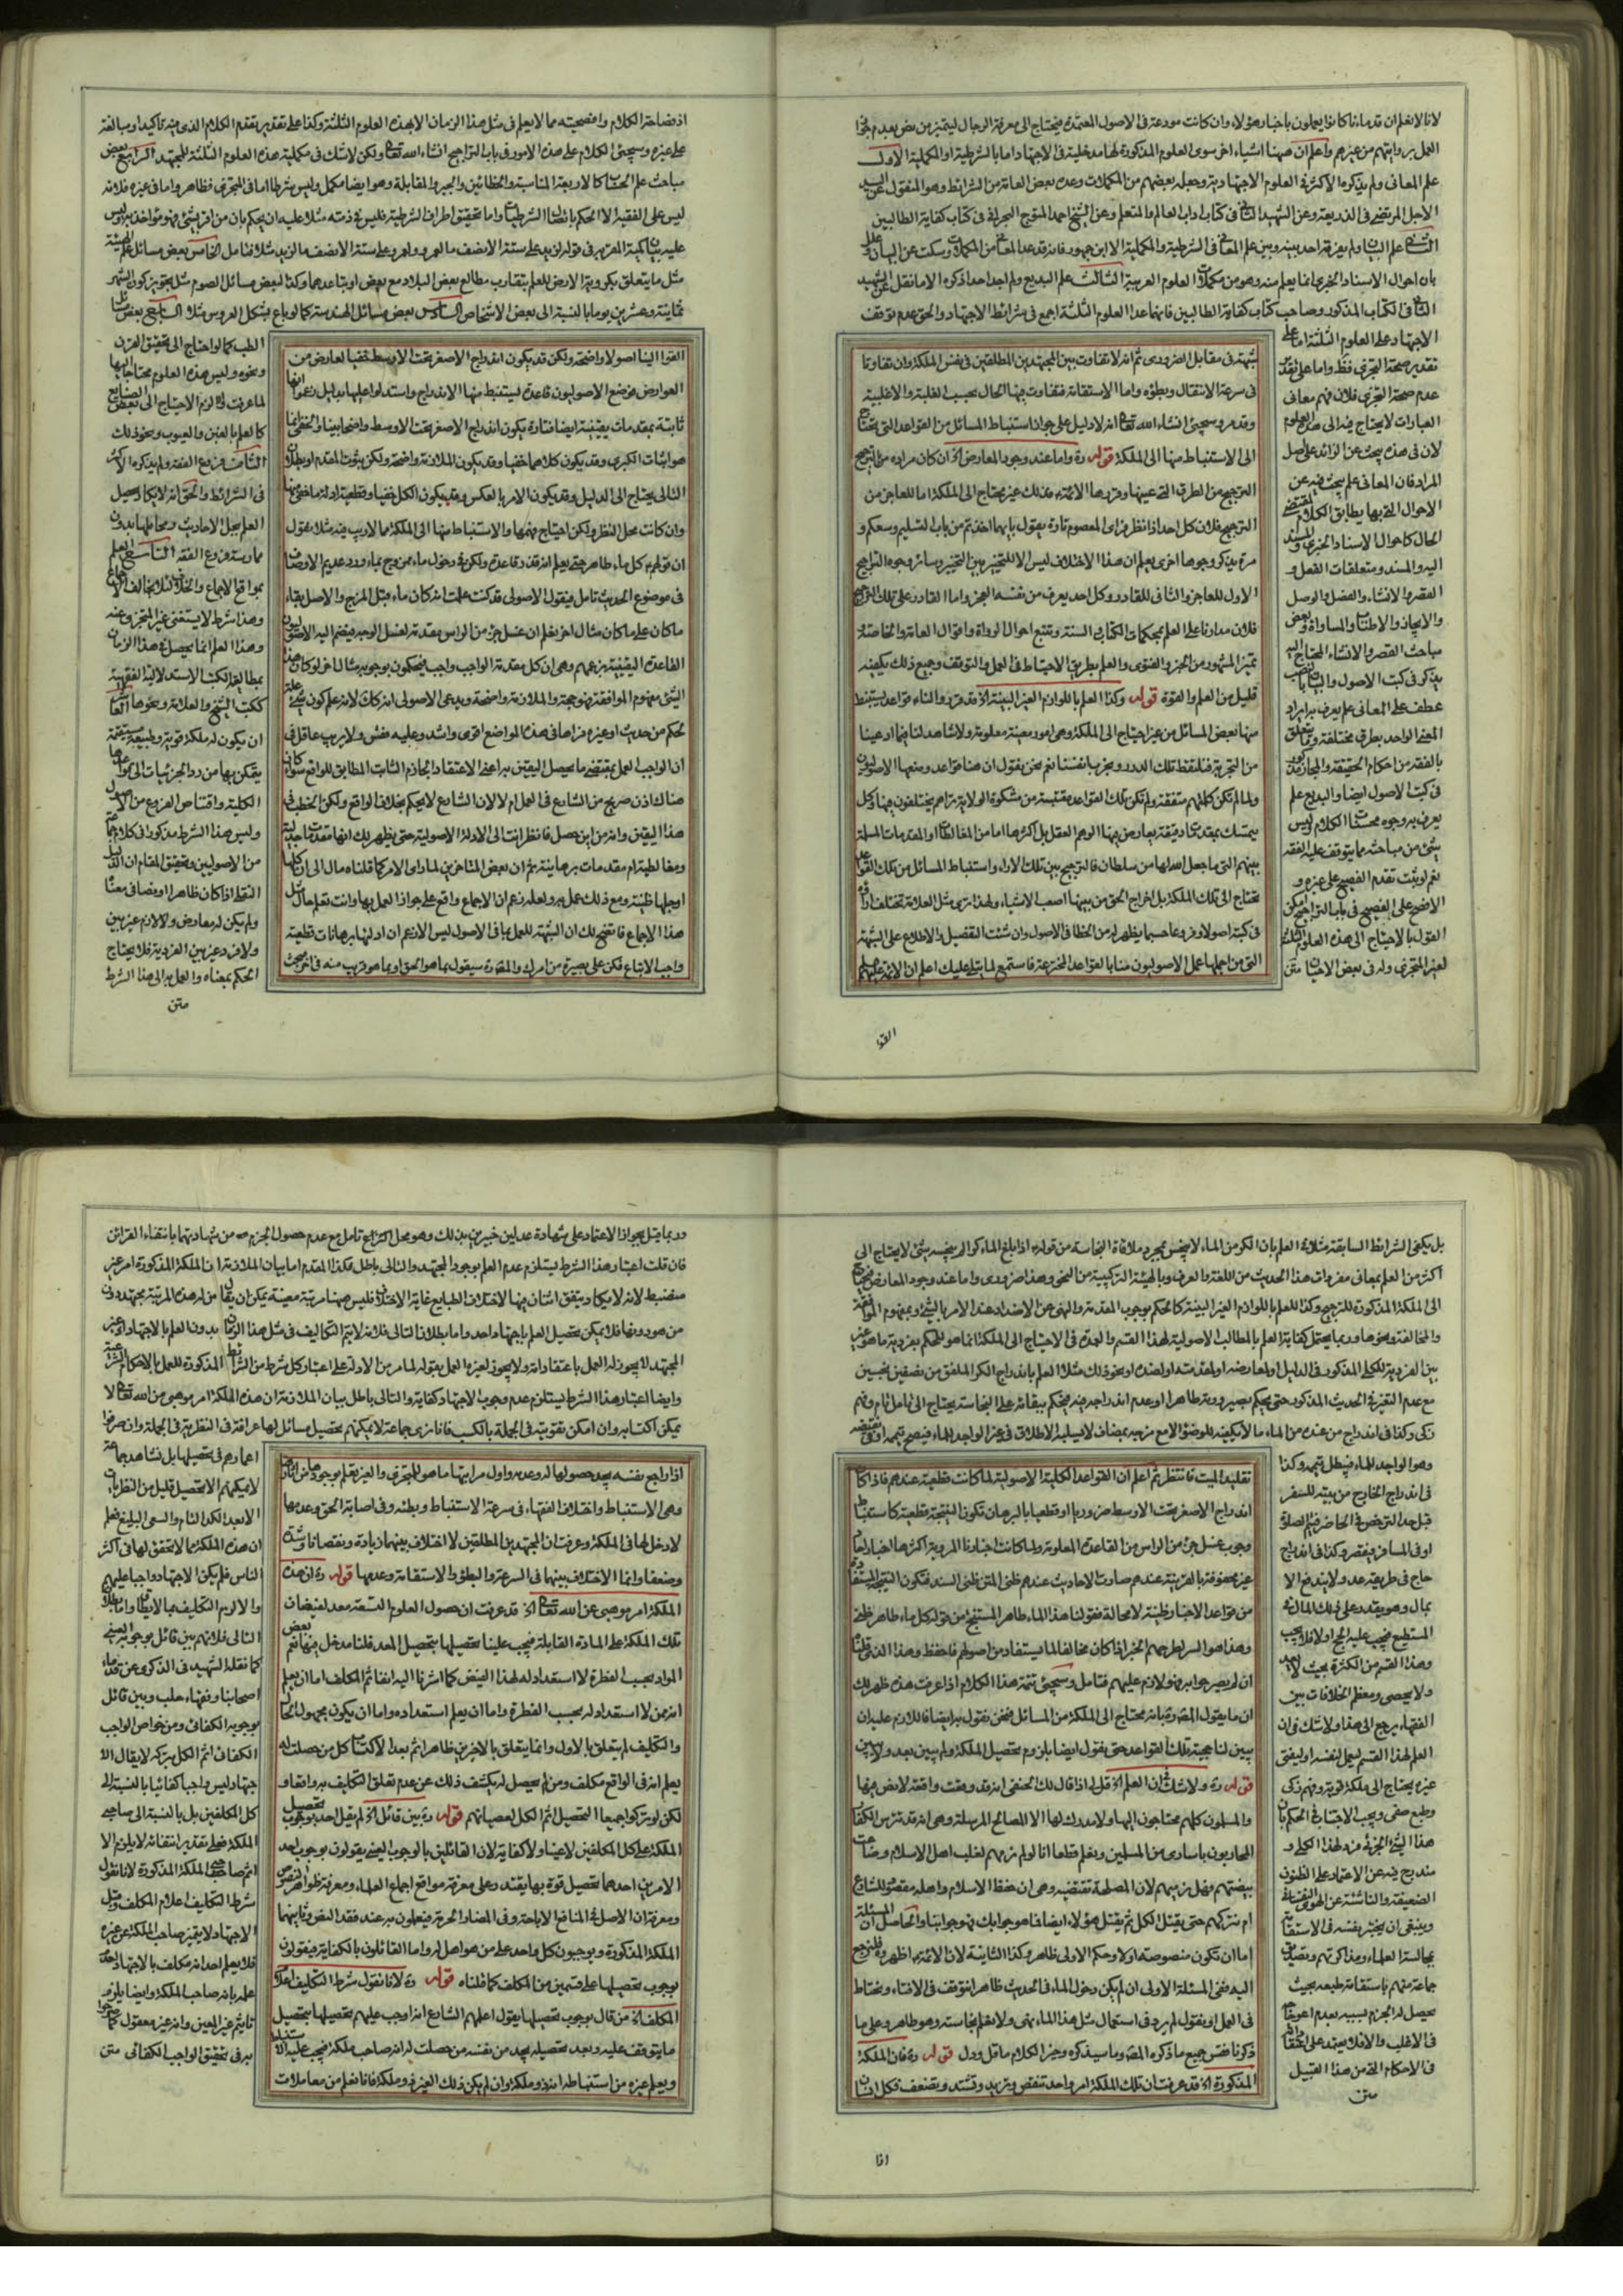 لانا لا نعلم ان قدماءنا كانوا يعملون باخبار هؤلاء وان كانت مودعة فى الاصول المعتمدة فيحتاج الى معرفة الرجال ليتميز من نص بعدم جواز
العمل بروايتهم من غيرهم واعلم ان ههنا اشياء اخر سوى العلوم المذكورة لها مدخلية فى الاجتهاد اما بالشرطية او المكملية الاول
علم المعانى ولم يذكره الاكثر فى العلوم الاجتهادية وجعله بعضهم من المكملات وعده بعض العامة من الشرائط وهو المنقول عن السيد
الاجل المرتضى فى الذريعة وعن الشهيد الثانى فى كتاب اداب العالم والمتعلم وعن الشيخ احمد المتوج البحرانى فى كتاب كفاية الطالبين
الثانى علم البيان ولم يفرق احد بينه وبين علم المعانى فى الشرطية والمكملية الا ابن جمهور فانه قد عد المعانى من المكملات وسكت عن البيان معللا
بان احوال الاسناد الخبرى انما يعلم منه وهو من مكملات العلوم العربية الثالث علم البديع ولم اجد احدا ذكره الا ما نقل عن الشهيد
الثانى فى الكتاب المذكور وصاحب كتاب كفاية الطالبين فانهما عدا العلوم الثلثة اجمع فى شرائط الاجتهاد والحق عدم توقف
الاجتهاد على العلوم الثلثة اما على
تقدير صحة التجزى فظ واما على تقدير
عدم صحة التجزى فلان فهم معانى
العبارات لا يحتاج فيه الى هذه العلوم
لان فى هذه يبحث عن الزائد على اصل
المراد فان المعانى علم يبحث فيه عن
الاحوال التى بها يطابق الكلام لمقتضى
الحال كاحوال الاسناد الخبرى والمسند
اليه والمسند ومتعلقات الفعل و
القصر والانشاء والفصل والوصل
والايجاز والاطناب والمساواة وبعض
مباحث القصر والانشاء المحتاج اليه
يذكر فى كتب الاصول والبيان بالنصب
عطف على المعانى علم يعرف به ايراد
المعنى الواحد بطرق مختلفة وما يتعلق
بالفقه من احكام الحقيقة والمجاز مذكور
فى كتب الاصول ايضا والبديع علم
يعرف به وجوه محسنات الكلام وليس
شئ من مباحثه مما يتوقف عليه الفقه
نعم لو ثبت تقدم الفصيح على غيره و
الافصح على الفصيح فى باب التراجيح امكن
القول بالاحتياج الى هذه العلوم الثلثة
لغير المتجزى وله فى بعض الاحيان متن
شبهة فى مقابل الضرورى ثم انه لا تفاوت بين المجتهدين المطلقين فى نفس الملكة وان تفاوتا
فى سرعة الانتقال وبطؤه واما الاستقامة فتفاوت فيها الحال بحسب الغلبة والاغلبية
وقد مر وسيجئ انشاء الله تعالى انه لا دليل على جواز استنباط المسائل من القواعد التى يحتاج
الى الاستنباط منها الى الملكة قوله ره واما عند وجود المعارض اه ان كان مراده من الترجيح
الترجيح من الطرق التى عينها وقررها الائمة ع فذلك غير محتاج الى الملكة اما للعاجز من
الترجيح فلان كل احد اذا نظر فراى المعصوم تارة يقول بايهما اخذتم من باب التسليم وسعكم و
مرة يذكر وجوها اخرى يعلم ان هذا الاختلاف ليس الا للتخيير بين التخيير وسائر وجوه التراجيح
الاول للعاجز والثانى للقادر وكل احد يعرف من نفسه العجز واما القادر على تلك التراجيح
فلان مدارنا على العلم بمحكمات الكتاب والسنة وتتبع احوال الرواة واقوال العامة والخاصة
تميز المشهور من الخبر والفتوى والعلم بطريق الاحتياط فى العمل والتوقف وجميع ذلك يكفيه
قليل من العلم والقوة قوله ره وكذا العلم باللوازم الغير البينة اه قد قرر والناء قواعد يستنبط
منها بعض المسائل من غير احتياج الى الملكة وهى امور معينة معلومة ولا شاهد لنا فيما ادعينا
من التجربة فنلقط تلك الدرر ونجرب انفسنا نعم نحن نقول ان هنا قواعد وضعها الاصوليون
ولما لم تكن كلمتهم متفقة ولم تكن تلك القواعد مقتبسة من مشكوة الولاية نراهم يختلفون فيها وكل
يتمسك بمقدمات دقيقة يعارض فيها الوهم العقل بل اكثرها اما من المغالطات او المقدمات المسلمة
بينهم التى ما جعل الله لها من سلطان فالترجيح بين تلك الاراء واستنباط المسائل من تلك القواعد
محتاج الى تلك الملكة بل اخراج الحق من بينها اصعب الاشياء ولهذا ترى مثل العلامة تختلف اراؤه
فى كتبه اصولا وفروعا حسبما يظهر له من الخطا فى الاصول وان شئت التفصيل والاطلاع على الشبهة
التى من اجلها عمل الاصوليون منا بالقواعد المخترعة فاستمع لما يتلى عليك اعلم ان الائمة عليهم
القوا
اذ فصاحة الكلام وافصحيته مما لا يعلم فى مثل هذا الزمان الا بهذه العلوم الثلثة وكذا على تقدير تقدم الكلام الذى فيه تاكيد او مبالغة
على غيره وسيجئ الكلام على هذه الامور فى باب التراجيح انشاء الله تعالى ولكن لا شك فى مكملية هذه العلوم الثلثة للمجتهد الرابع بعض
مباحث علم الحساب كالاربعة المتناسبة والخطائين والجبر والمقابلة وهو ايضا مكمل وليس شرطا اما فى المتجزى فظاهر واما فى غيره فلانه
ليس على الفقيه الا الحكم باتصال الشرطيات واما تحقيق اطراف الشرطية فليس فى ذمته مثلا عليه ان يحكم بان من اقر بشئ فهو مؤاخذ به وليس
عليه بيان كمية المقر به فى قوله لزيد على ستة الا نصف ما لعمرو ولعمرو على ستة الا نصف ما لزيد مثلا فتامل الخامس بعض مسائل علم الهيئة
مثل ما يتعلق بكروية الارض للعلم بتقارب مطالع بعض البلاد مع بعض او تباعدهما وكذا لبعض مسائل الصوم مثل تجويز كون الشهر
ثمانية وعشرين يوما بالنسبة الى بعض الاشخاص السادس بعض مسائل الهندسة كما لو باع بشكل العروس مثلا السابع بعض مسائل
الطب كما لو احتاج الى تحقيق القرن
ونحوه وليس هذه العلوم محتاجا اليها
لما عرفت والا لزم الاحتياج الى بعض الصنايع
كالعلم بالغبن والعيوب ونحو ذلك
الثامن فروع الفقه ولم يذكره الاكثر
فى الشرائط والحق انه لا يكاد يحصل
العلم بحل الاحاديث ومحاملها بدون
ممارسة فروع الفقه التاسع العلم
بمواقع الاجماع والخلاف لئلا يخالف الاجماع
وهذا شرط لا يستغنى غير المتجزى عنه
وهذا العلم انما يحصل فى هذا الزمان
بمطالعة الكتب الاستدلالية الفقهية
ككتب الشيخ والعلامة ونحوها العاشر
ان يكون له ملكة قوية وطبيعة مستقيمة
يتمكن بها من رد الجزئيات الى قواعدها
الكلية واقتناص الفروع من الاصول
وليس هذا الشرط مذكورا فى كلام جماعة
من الاصوليين وتحقيق المقام ان الدليل
النقلى اذا كان ظاهرا او نصا فى معناه
ولم يكن له معارض ولا لازم غير بين
ولا فرد غير بين الفردية فلا يحتاج
الحكم بمعناه والعمل به الى هذا الشرط
متن
القوا الينا اصولا واضحة ولكن قد يكون اندراج الاصغر تحت الاوسط خفيا لعارض من
العوارض فوضع الاصوليون قاعدة ليستنبط منها الاندراج واستدلوا عليها بدليل زعموا انها
ثابتة بمقدمات يقينية ايضا فتارة يكون اندراج الاصغر تحت الاوسط واضحا بينا والخفى انما
هو اثبات الكبرى وقد يكون كلاهما خفيا وقد يكون الملازمة واضحة ولكن ثبوت المقدم او بطلان
التالى يحتاج الى الدليل وقد يكون الامر بالعكس وقد يكون الكل خفيا وقطعية ادلة ما خفى منها
وان كانت محل النظر ولكن احتياج فهمها والاستنباط منها الى الملكة مما لا ريب فيه مثلا نقول
ان قولهم كل ماء طاهر حتى يعلم انه قذر قاعدة ولكن فى دخول ماء ممزوج بماء ورد عديم الاوصاف
فى موضوع الحديث تامل فيقول الاصولى قد كنت علمت انه كان ماء قبل المزج والاصل بقاء
ما كان على ما كان مثال اخر نعلم ان غسل جزء من الراس مقدمة لغسل الوجه فيضم اليه الاصوليون
القاعدة اليقينية بزعمهم وهى ان كل مقدمة الواجب واجب فيحكون بوجوبه مثال اخر لو كان هذا
الشئ مفهوم الموافقة فهو حجة والملازمة واضحة ويدعى الاصولى انه كك لانه علم كون شئ علة
لحكم من حديث او غيره فراها فى هذه المواضع اقوى واشد وعليه فقس ولا يريب عاقل فى
ان الواجب العمل بمقتضى ما يحصل اليقين به اعنى الاعتقاد الجازم الثابت المطابق للواقع سواء كان
هناك اذن صريح من الشارع فى العمل ام لا لان الشارع لا يحكم بخلاف الواقع ولكن الخطب فى
هذا اليقين وانه من اين حصل فانظر انت الى الادلة الاصولية حتى يظهر لك انها مقدمات جدلية
ومغالطية ام مقدمات برهانية ثم ان بعض المتاخرين لما راوا الامر كما قلناه مال الى ان كلها
او جلها ظنية ومع ذلك عمل به ولعله زعم ان الاجماع واقع على جواز العمل بها وانت تعلم حال مثل
هذا الاجماع فاتضح لك ان الشبهة للعمل بما فى الاصول ليس الا زعم ان ادلتها برهانات قطعية
واجب الاتباع فكن على بصيرة من امرك والمص ره سيقول بما هو الحق او بما هو قريب منه فى اخر مبحث
بل يكفى الشرائط السابقة مثلا فى العلم بان الكر من الماء لا ينجس بمجرد ملاقاة النجاسة من قوله ع اذا بلغ الماء كرا لم ينجسه شئ لا يحتاج الى
اكثر من العلم بمعانى مفردات هذا الحديث من اللغة والعرف وبالهيئة التركيبية من النحو وهذا ضرورى واما عند وجود المعارض فيحتاج
الى الملكة المذكورة للترجيح وكذا للعلم باللوازم الغير البينة كالحكم بوجوب المقدمة والنهى عن الاضداد عند الامر بالشئ وبمفهوم الموافقة
والمخالفة ونحوها وربما يحتمل كفاية العلم بالمطالب الاصولية لهذا القسم والعمدة فى الاحتياج الى الملكة انما هو للحكم بفردية ما هو غير
بين الفردية للكلى المذكور فى الدليل او لمعارضه او لمقدمته او لضده او نحو ذلك مثلا العلم باندراج الكر الملفق من نصفين نجسين
مع عدم التغير فى الحديث المذكور حتى يحكم بصيرورته طاهرا او عدم اندراجه فيه فيحكم ببقائه على النجاسة يحتاج الى تامل تام وفهم
زكى وكذا فى اندراج من عنده من الماء ما لا يكفيه للوضوء الا مع مزجه بمضاف لا يسلبه الاطلاق فى غير الواجد للماء فيصح تيممه او فى نقيضه
وهو الواجد للماء فيبطل تيممه وكذا
فى اندراج الخارج من بيته للسفر
قبل حد الترخص فى الحاضر فيتم الصلوة
او فى المسافر فيقصر وكذا فى اندراج
حاج فى طريقه عدو لا يندفع الا
بمال وهو يقدر على ذلك المال فى
المستطيع فيجب عليه الحج او لا فلا يجب
وهذا القسم من الكثرة بحيث لا يعد
ولا يحصى ومعظم الخلافات بين
الفقهاء يرجع الى هذا ولا شك فى ان
العلم بهذا القسم ليعمل لنفسه او ليفتى
غيره يحتاج الى ملكة قوية وفهم زكى
وطبع صفى ويجب الاحتياط فى الحكم بان
هذا الشئ الجزئى فرد لهذا الكلى و
مندرج فيه عن الاعتماد على الظنون
الضعيفة والناشئة عن الهوى النفسانى
وينبغى ان يختبر نفسه فى الاستقامة
بمجالسة العلماء ومذاكرتهم وتصديق
جماعة منهم باستقامة طبعه بحيث
يحصل له الجزم بسببه بعدم اعوجاجه
فى الاغلب والا فلا يعتمد على اعتقاداته
فى الاحكام التى من هذا القبيل
متن
تقليد الميت فانتظر ثم اعلم ان القواعد الكلية الاصولية لما كانت قطعية عندهم فاذا كان
اندراج الاصغر تحت الاوسط ضروريا او قطعيا بالبرهان تكون النتيجة قطعية كاستنباط
وجوب غسل جزء من الراس من القاعدة المعلومة ولما كانت اخبارنا المروية اكثرها اخبار احاد
غير محفوفة بالقرينة عندهم صارت الاحاديث عندهم ظنى المتن ظنى السند فتكون النتيجة المستفادة
من قواعد الاخبار ظنية لا محالة فقولنا هذا الماء طاهر المستنتج من قوله كل ماء طاهر ظنى
وهذا هو السر لطرحهم الخبر اذا كان مخالفا لما يستفاد من اصولهم فاحفظ وهذا الذى قلنا
ان لم يصرحوا به فهو لازم عليهم فتامل وسيجئ تتمة هذا الكلام اذا عرفت هذه ظهر لك
ان ما يقول المص ره بانه محتاج الى الملكة من المسائل فنحن نقول به ايضا فاللازم عليه ان
يبين لنا حجية تلك القواعد حتى نقول ايضا بلزوم تحصيل الملكة ولم يبين بعد ولا يبين
قوله ره ولا شك فى ان العلم اه قل له اذا قال لك الحنفى انه قد وقعت واقعة لا نص فيها
والمسلمون كلهم محتاجون اليها ولا مدرك لها الا المصالح المرسلة وهى انه قد تترس الكفار
المحاربون باسارى من المسلمين ونعلم قطعا انا لو لم نرمهم لغلب اهل الاسلام وضاعت
بيضتهم فهل نرميهم لان المصلحة تقتضيه وهى ان حفظ الاسلام واهله مقصود للشارع
ام نتركهم حتى يقتل الكل ثم يقتل هؤلاء ايضا فما هو جوابك فهو جوابنا والحاصل ان المسئلة
اما ان تكون منصوصة او لا وحكم الاولى ظاهر وكذا الثانية لان الائمة ع اظهر فلنرجع
اليه ففى المسئلة الاولى ان لم يكن دخول الماء فى الحديث ظاهرا نتوقف فى الافتاء ونحتاط
فى العمل او نقول لم يرد فى استعمال مثل هذا الماء نهى ولا نعلم نجاسته وهو طاهر وعلى ما
ذكرنا فقس جميع ما ذكره المص ره وما سيذكره وخير الكلام ما قل ودل قوله ره فان الملكة
المذكورة اه قد عرفت ان تلك الملكة امر واحد تنقص وتزيد وتشتد وتضعف فكل انسان
اذا
وربما قيل بجواز الاعتماد على شهادة عدلين خبيرين بذلك وهو محل تامل مع عدم حصول الجزم من شهادتهما بانتفاء القرائن
فان قلت اعتبار هذا الشرط يستلزم عدم العلم بوجود المجتهد والتالى باطل فكذا المقدم اما بيان الملازمة ان الملكة المذكورة امر غير
منضبط لانه لا يكاد يتفق اثنان فيها لاختلاف الطبايع غاية الاختلاف فليس ههنا مرتبة معينة يمكن ان يقال ان من له هذه المرتبة مجتهد دون
من هو دونها فلا يمكن تحصيل العلم باجتهاد واحد واما بطلان التالى فلانه لا يتم التكاليف فى مثل هذا الزمان بدون العلم بالاجتهاد اذ غير
المجتهد لا يجوز له العمل باعتقاداته ولا يجوز لغيره العمل بقوله لما مر من الادلة على اعتبار كل شرط من الشرائط المذكورة للعمل بالاحكام الشرعية
وايضا اعتبار هذا الشرط يستلزم عدم وجوب الاجتهاد كفاية والتالى باطل بيان الملازمة ان هذه الملكة امر موهبى من الله تعالى لا
يمكن اكتسابه وان امكن تقويته فى الجملة بالكسب فانا نرى جماعة لا يمكنهم تحصيل مسائل لها عراقة فى النظرية فى الجملة وان صرفوا
اعمارهم فى تحصيلها بل نشاهد جماعة
لا يمكنهم الا تحصيل قليل من النظريات
الا بعد الكد التام والسعى البليغ فعلم
ان هذه الملكة مما لا يتحقق لها فى اكثر
الناس فلم يكن الاجتهاد واجبا عليهم
والا لزم التكليف بما لا يطاق واما بطلان
التالى فلانهم بين قائل بوجوبه العينى
كما نقله الشهيد فى الذكرى عن قدماء
اصحابنا وفقهاء حلب وبين قائل
بوجوبه الكفائى ومن خواص الواجب
الكفائى اثم الكل بتركه لا يقال الا
جهاد ليس واجبا كفائيا بالنسبة الى
كل المكلفين بل بالنسبة الى صاحب
الملكة فعلى تقدير انتفائه لا يلزم الا
اثم صاحبى الملكة المذكورة لانا نقول
شرط التكليف اعلام المكلف وقبل
الاجتهاد لا يتميز صاحب الملكة عن غيره
فلا يعلم احد انه مكلف بالاجتهاد لعدم
علمه بانه صاحب الملكة وايضا يلزم
تاثيم غير المعين وانه غير معقول كما صرحوا
به فى تحقيق الواجب الكفائى متن
اذا راجع نفسه يجد حصولها له وعدمه واول مراتبها ما هو للمتجزى والغير يعلم بوجودها من اثارها
وهى الاستنباط واختلاف الفقهاء فى سرعة الاستنباط وبطئه وفى اصابة الحق وعدمها
لا دخل لها فى الملكة وعرفت ان المجتهدين المطلقين لا اختلاف بينهما زيادة ونقصانا وشدة
وضعفا وانما الاختلاف بينهما فى السرعة والبطؤ والاستقامة وعدمها قوله ره ان هذه
الملكة امر موهبى عن الله تعالى اه قد عرفت ان حصول العلوم التسعة معد لفيضان
تلك الملكة على المادة القابلة فيجب علينا تحصيلها بتحصيل المعد فلنا مدخل فيها نعم بعض
المواد بحسب الفطرة لا استعداد له لهذا الفيض كما اشرنا اليه انفا ثم المكلف اما ان يعلم
انه ممن لا استعداد له بحسب الفطرة واما ان يعلم استعداده واما ان يكون مجهول الحال
والتكليف لم يتعلق بالاول وانما يتعلق بالاخرين ظاهرا ثم بعد الاكتساب كل من حصلت له
يعلم انه فى الواقع مكلف ومن لم يحصل له يكشف ذلك عن عدم تعلق التكليف به واقعا و
لكن لو تركوا جميعا التحصيل اثم الكل لعصيانهم قوله ره بين قائل اه لم يقل احد بوجوب تحصيل
الملكة على كل المكلفين لا عينا ولا كفاية لان القائلين بالوجوب العينى يقولون بوجوب احد
الامرين احدهما تحصيل قوة بها يقتدر على معرفة مواقع اجماع العلماء ومعرفة ظواهر النصوص
ومعرفة ان الاصل فى المنافع الاباحة وفى المضار الحرمة فيعملون به عند فقد النص وثانيهما
الملكة المذكورة ويوجبون كل واحد على من هو اهل له واما القائلون بالكفاية فيقولون
بوجوب تحصيلها على قسمين من المكلف كما قلناه قوله ره لانا نقول شرط التكليف اعلام
المكلف اه من قال بوجوب تحصيلها يقول اعلمهم الشارع انه اوجب عليهم تحصيلها بتحصيل
ما يتوقف عليه وبعد تحصيله يجد من نفسه من حصلت له انه صاحب ملكة فيجب عليه الاستنباط
ويعلم غيره من استنباطه انه ذو ملكة وان لم يكن ذلك الغير ذو ملكة فانا نعلم من معاملات